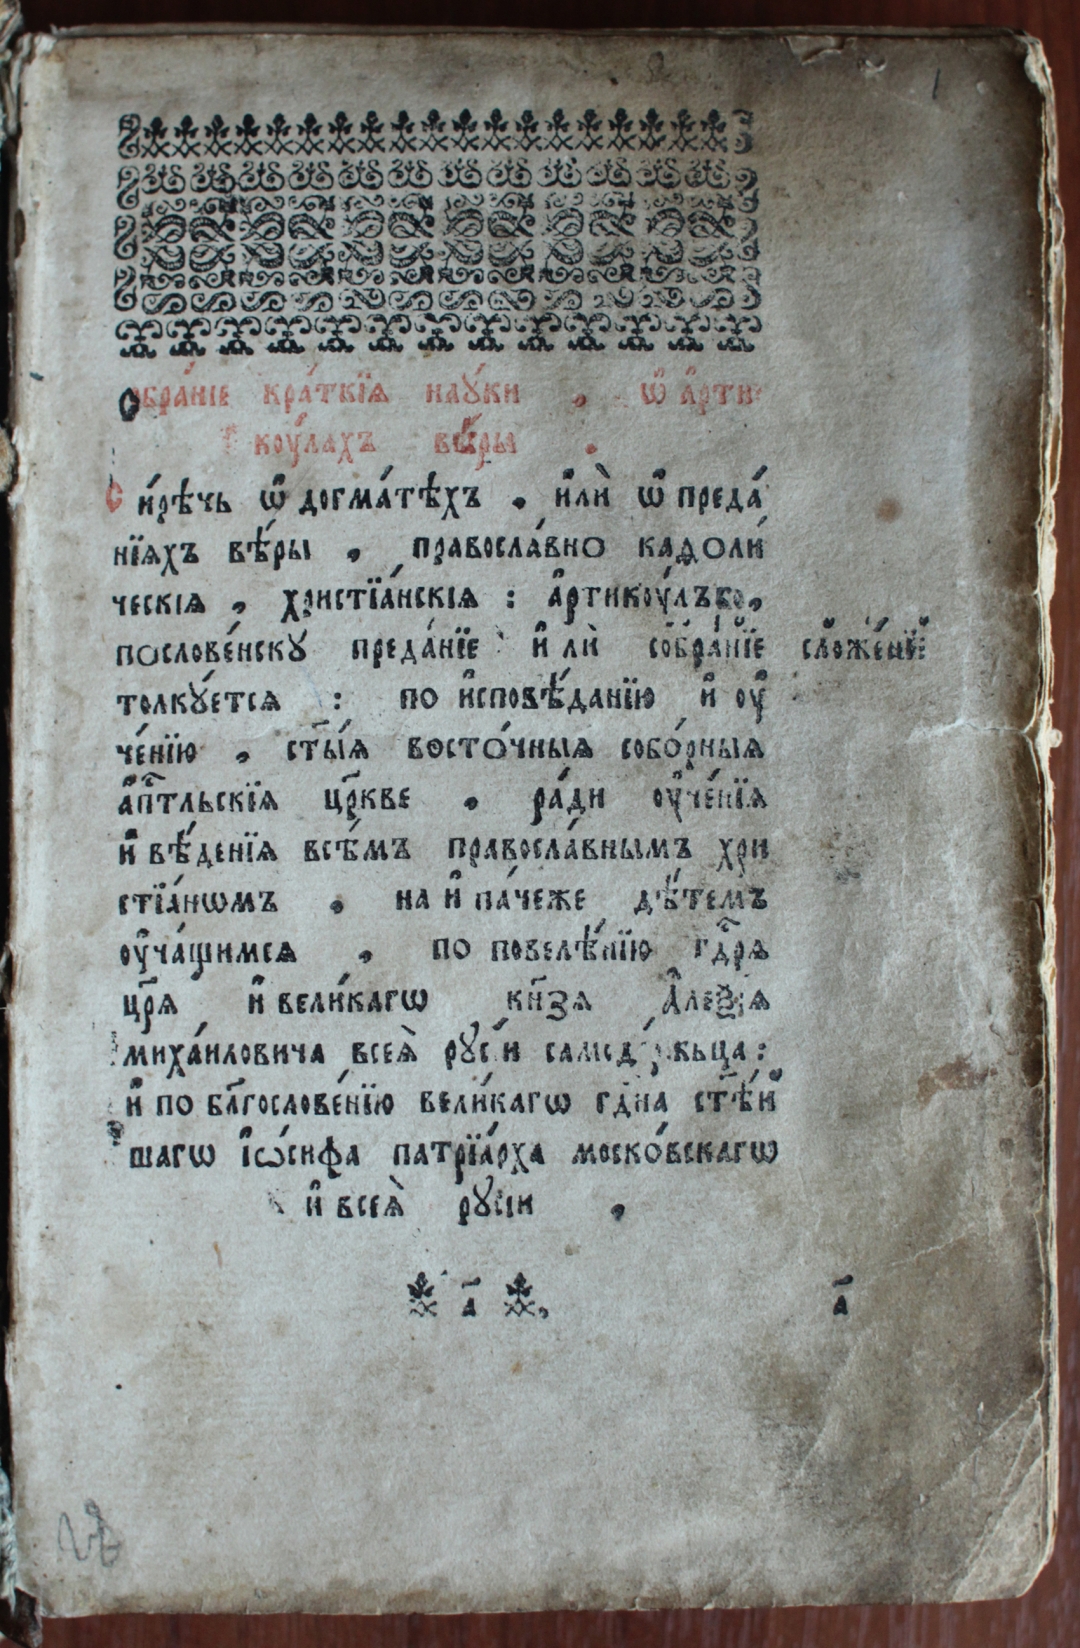 1
Собра́нїе кра́ткїѧ наꙋ́ки , ѡ҆ а҆рти
коу́лахъ вѣ́ры .
Си́рѣчь ѡ҆ догма́тѣхъ , и҆лѝ ѡ҆ преда́
нїѧхъ вѣ́ры , правосла́вно каѳоли́
ческїѧ , христїа́нскїѧ : а҆ртикоу́лъбо ,
пословѐнскꙋ преда́нїе и҆ лѝ собра́нїе сложе́нїй
толкꙋ́етсѧ : по и҆сповѣ́данїю и҆ оу҆
че́нїю , ст҃ы́ѧ восто́чныѧ собо́рныѧ
а҆пⷭ҇тльскїѧ цр҃кве , ра́ди оу҆че́нїѧ
и҆ вѣ́денїѧ всѣ́мъ правосла́внымъ хри
стїа́нѡмъ , на и҆ па́чеже дѣ́темъ
оу҆ча́щимсѧ , по повелѣ́нїю гдⷭ҇рѧ
цр҃ѧ̀ и҆ вели́кагѡ кн҃зѧ А҆леѯі́ѧ
миха́иловича всеѧ̀ рꙋсі́и самод́ержьца :
и҆ по бл҃гослове́нїю вели́кагѡ гдⷭ҇на ст҃ѣ́й
шагѡ І҆ѡ́сифа патрїа́рха моско́вскагѡ
и҆ всеѧ̀ рꙋсїи ,
а҃ , а҃